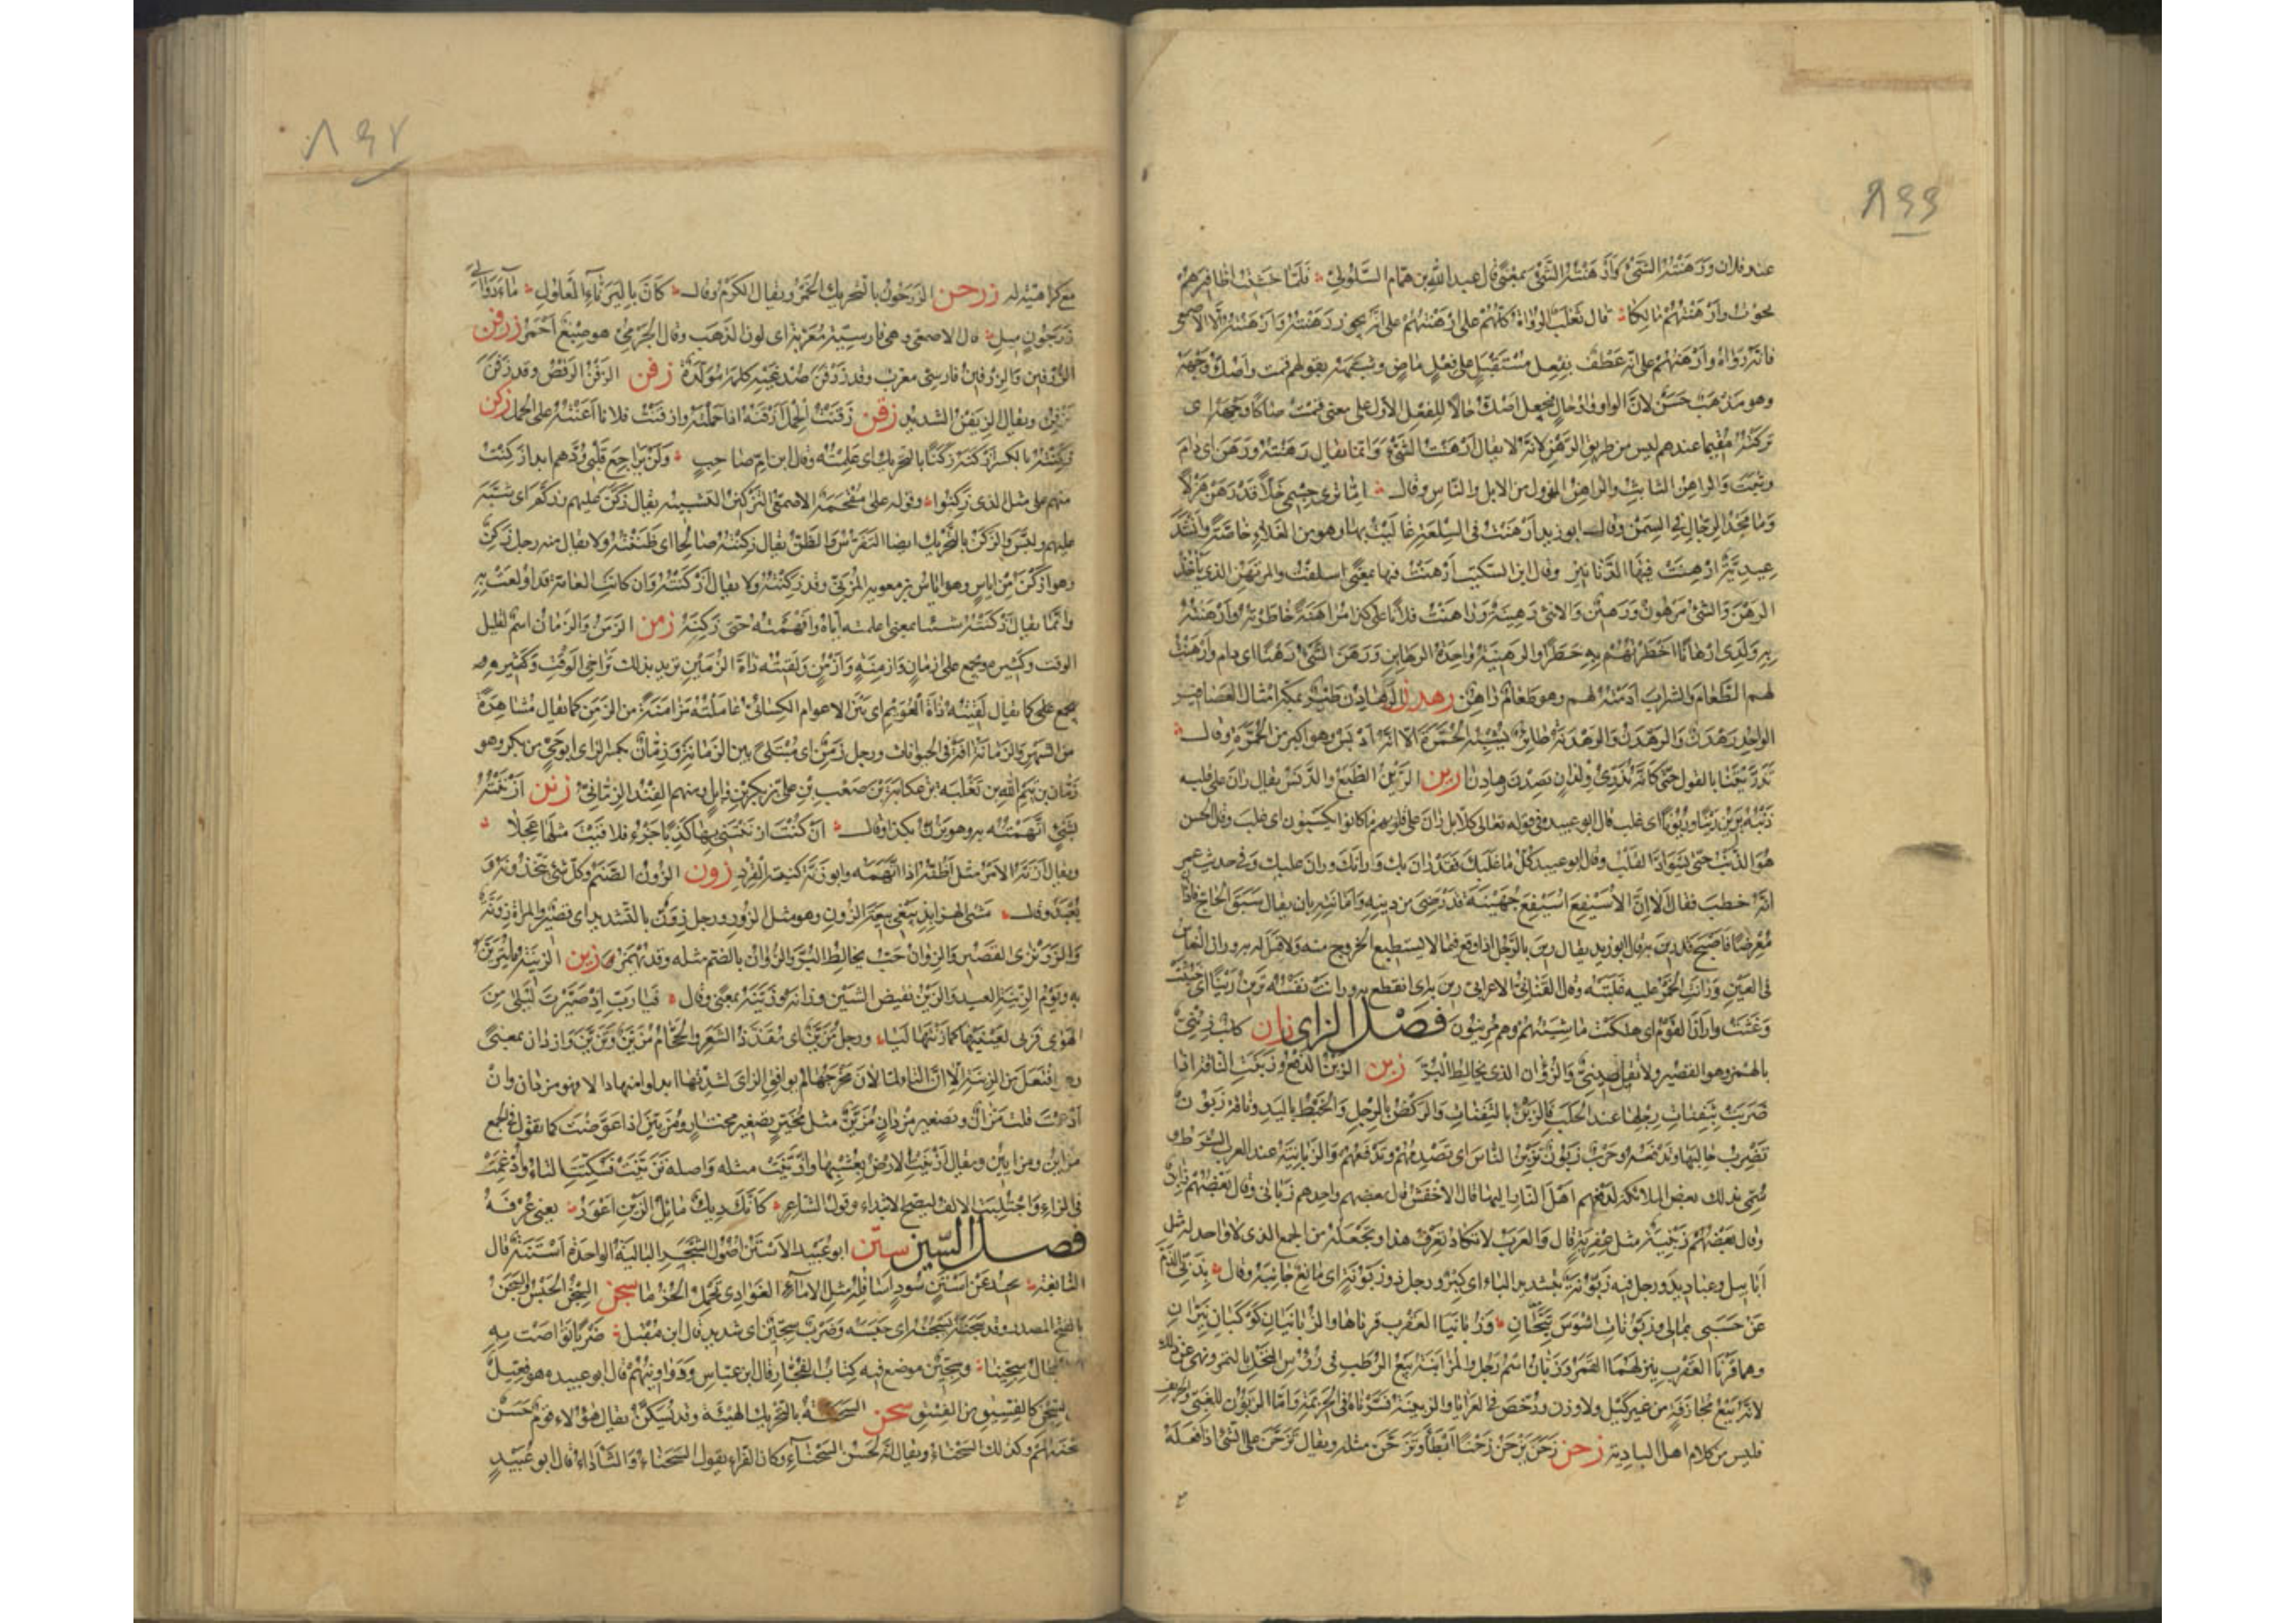 ٨٩٩
عند فلان ورهنته الشىء وارهنته الشىء بمعنى قال عبد الله بن همام السلولى فلما خشيت اظافيرهم
نجوت وارهنتهم مالكا قال ثعلب الرواة كلهم على ارهنتهم على انه يجوز رهنته وارهنته الا الاصمعى
فانه رواه وارهنهم على انه عطف بفعل مستقبل على فعل ماض وشبهه بقولهم قمت واصك وجهه
وهو مذهب حسن لان الواو واو حال فيجعل اصك حالا للفعل الاول على معنى قمت صاكا وجهه اى
تركته مقيما عندهم ليس من طريق الرهن لانه لا يقال ارهنت الشىء وانما يقال رهنته ورهن اى دام
وثبت والراهن الثابت والراهن المهزول من الابل والناس وقال اما ترى جسمى خلا قد رهن هزلا
وما مجد الرجال فى السمن وقال ابو زيد ارهنت فى السلعة غاليت بها وهو من الغلاء خاصة وانشد
عيدية ارهنت فيها الدنانير وقال ابن السكيت ارهنت فيها بمعنى اسلفت والمرتهن الذى يأخذ
الرهن والشىء مرهون ورهين والانثى رهينة وراهنت فلانا على كذا مراهنة خاطرته وارهنت
به ولدى ارهانا اخطرتهم به خطرا والرهينة واحدة الرهاين ورهن الشىء رهنا اى دام وارهنت
لهم الطعام والشراب ادمته لهم وهو طعام راهن رهدن الرهادن طير بمكة امثال العصافير
الواحد رهدن والرهدن والرهدنة طاير يشبه الحمرة الا انه ادبس وهو اكبر من الحمرة وقال
تذريننا بالقول حتى كانه تذرى ولدان يصدن رهادنا رين الرين الطبع والدنس يقال ران على قلبه
ذنبه يرين رينا وريونا اى غلب قال ابو عبيدة فى قوله تعالى كلا بل ران على قلوبهم ما كانوا يكسبون اى غلب وقال الحسن
هو الذنب حتى يسواد القلب وقال ابو عبيد كل ما غلبك فقد ران بك ورانك وران عليك وفى حديث عمر
انه خطب فقال الا ان الاسيفع اسيفع جهينة قد رضى من دينه وامانته بان يقال سبق الحاج فادان
معرضا فاصبح قد رين به قال ابو زيد يقال رين بالرجل اذا وقع فيما لا يستطيع الخروج منه ولا قبل له به وران النعاس
فى العين ورانت الخمر عليه غلبته وقال القنانى الاعرابى رين به اى انقطع به ورانت نفسه ترين رينا اى خبثت
وغثت واران القوم اى هلكت ماشيتهم وهم مرينون فصل الزاى زان كلب زئنى
بالهمز وهو القصير ولا تقل صينى والزؤان الذى يخالط البر زبن الزبن الدفع وزبنت الناقة اذا
ضربت بثفنات رجلها عند الحلب فالزبن بالثفنات والركض بالرجل والخبط باليد وناقة زبون
تضرب حالبها وتدفعه وحرب زبون تزبن الناس اى تصدمهم وتدفعهم والزبانية عند العرب الشرط و
سمى بذلك بعض الملائكة لدفعهم اهل النار اليها قال الاخفش قال بعضهم واحدهم زبانى وقال بعضهم زابن
وقال بعضهم زبنية مثل عفرية قال والعرب لا تكاد تعرف هذا وتجعله من الجمع الذى لا واحد له مثل
ابابيل وعباديد ورجل فيه زبونة بتشديد الباء اى كبر ورجل ذو زبونة اى مانع جانبه وقال بذبى الذم
عن حسبى بمالى وزبونات اشوس تيحان وزبانيا العقرب قرناها والزبانيان كوكبان نيران
وهما قرنا العقرب ينزلهما القمر وزبان اسم رجل والمزابنة بيع الرطب فى رؤس النخل بالتمر ونهى عن ذلك
لانه بيع مجازفة من غير كيل ولا وزن ورخص فى العرايا واما الزبون للغبى والحريف
فليس من كلام اهل البادية زحن زحن يزحن زحنا ابطأ وتزحن مثله ويقال تزحن على الشىء اذا فعله
٨٩٧
مع كراهيته له زرجن الزرجون بالتحريك الخمر ويقال الكرم وقال كان باليرنأ المعلول ماء دوالى
زرجون ميل قال الاصمعى وهى فارسية معربة اى لون الذهب وقال الجرمى هو صبغ احمر زرفن
الزرفين والزرفين فارسى معرب وقد زرفن صدغيه كلمة مولدة زفن الزفن الرقص وقد زفن
يزفن ويقال الزيفن الشديد زقن زقنت الحمل ازقنه اذا حملته وازقنت فلانا اعنته على الحمل زكن
زكنته بالكسر ازكنه زكنا بالتحريك اى علمته وقال ابن ام صاحب ولن يراجع قلبى ودهم ابدا زكنت
منهم على مثل الذى زكنوا وقوله على مقحمة الاصمعى التزكين التشبيه يقال زكن عليهم وزكم اى شبه
عليهم ولبس والزكن بالتحريك ايضا التفرس والظن يقال زكنته صالحا اى ظننته ولا يقال منه رجل زكن
وهو ازكن من اياس وهو اياس بن معوية المزنى وقد زكنته ولا يقال ازكنته وان كانت العامة قد اولعت به
وانما يقال ازكنته شيئا بمعنى اعلمته اياه وافهمته حتى زكنه زمن الزمن والزمان اسم لقليل
الوقت وكثيره ويجمع على ازمان وازمنة وازمن ولقيته ذات الزمين تريد بذلك تراخى الوقت
كما يقال لقيته ذات العويم اى بين الاعوام الكسائى عاملته مزامنة من الزمن كما يقال مشاهرة
من الشهر والزمانة آفة فى الحيوانات ورجل زمن اى مبتلى بين الزمانة وزمان بكسر الزاى ابو حى من بكر وهو
زمان بن تيم الله بن ثعلبة بن عكابة بن صعب بن على بن بكر بن وايل ومنهم الفند الزمانى زنن ازننته
بشىء اتهمته به وهو يزن بكذا وقال ان كنت ازننتنى بها كذبا جزء فلاقيت مثلها عجلا
ويقال ازنه الامر مثل اظنه اذا اتهمه وابو زنة كنية القرد زون الزون الصنم وكل شىء يتخذ ربا و
يعبد وقال مشى الهرابذ يبغى بيعة الزون وهو مثل الزور ورجل زون بالتشديد اى قصير والمراة زونة
والزونزى القصير والزوان حب يخالط البر والزوان بالضم مثله وقد يهمز زين الزينة ما يتزين
به ويوم الزينة العيد والزين نقيض الشين وزانه وزينه بمعنى وقال فيا رب اذ صيرت ليلى من
الهوى فزنى لعينيها كما زنتها ليا ورجل مزين اى مقذذ الشعر والحجام مزين وتزين وازدان بمعنى
وهو افتعل من الزينة الا ان التاء لما لان مخرجها لم يوافق الزاى لشدتها ابدلوا منها دالا فهو مزدان وان
ادغمت قلت مزان وتصغير مزدان مزين مثل مخير تصغير مختار ومزيين اذا عوضت كما تقول فى الجمع
مزاين ومزايين ويقال ازينت الارض بعشبها وازينت مثله واصله تزينت فسكنت التاء وادغمت
فى الزاء واجتلبت الالف ليصح الابتداء وقول الشاعر كانك ديك مائل الزين اعور يعنى عرفه
فصل السين ستن ابو عبيد الاستن اصول الشجر البالية الواحدة استنة قال
النابغة تحيد عن استن سود اسافله مثل الاماء الغوادى تحمل الحزما سجن السجن الحبس والسجن
بالفتح المصدر وقد سجنه يسجنه اى حبسه وضرب سجين اى شديد قال ابن مقبل ضربا تواصت به
الابطال سجينا وسجين موضع فيه كتاب الفجار قال ابن عباس ودواوينهم قال ابو عبيدة هو فعيل
من السجن كالفسيق من الفسق سحن السحنة بالتحريك الهيئة وقد تسكن يقال هؤلاء قوم حسن
سحنتهم وكذلك السحناء ويقال انه لحسن السحناء وكان الفراء يقول السحناء والثأداء قال ابو عبيد